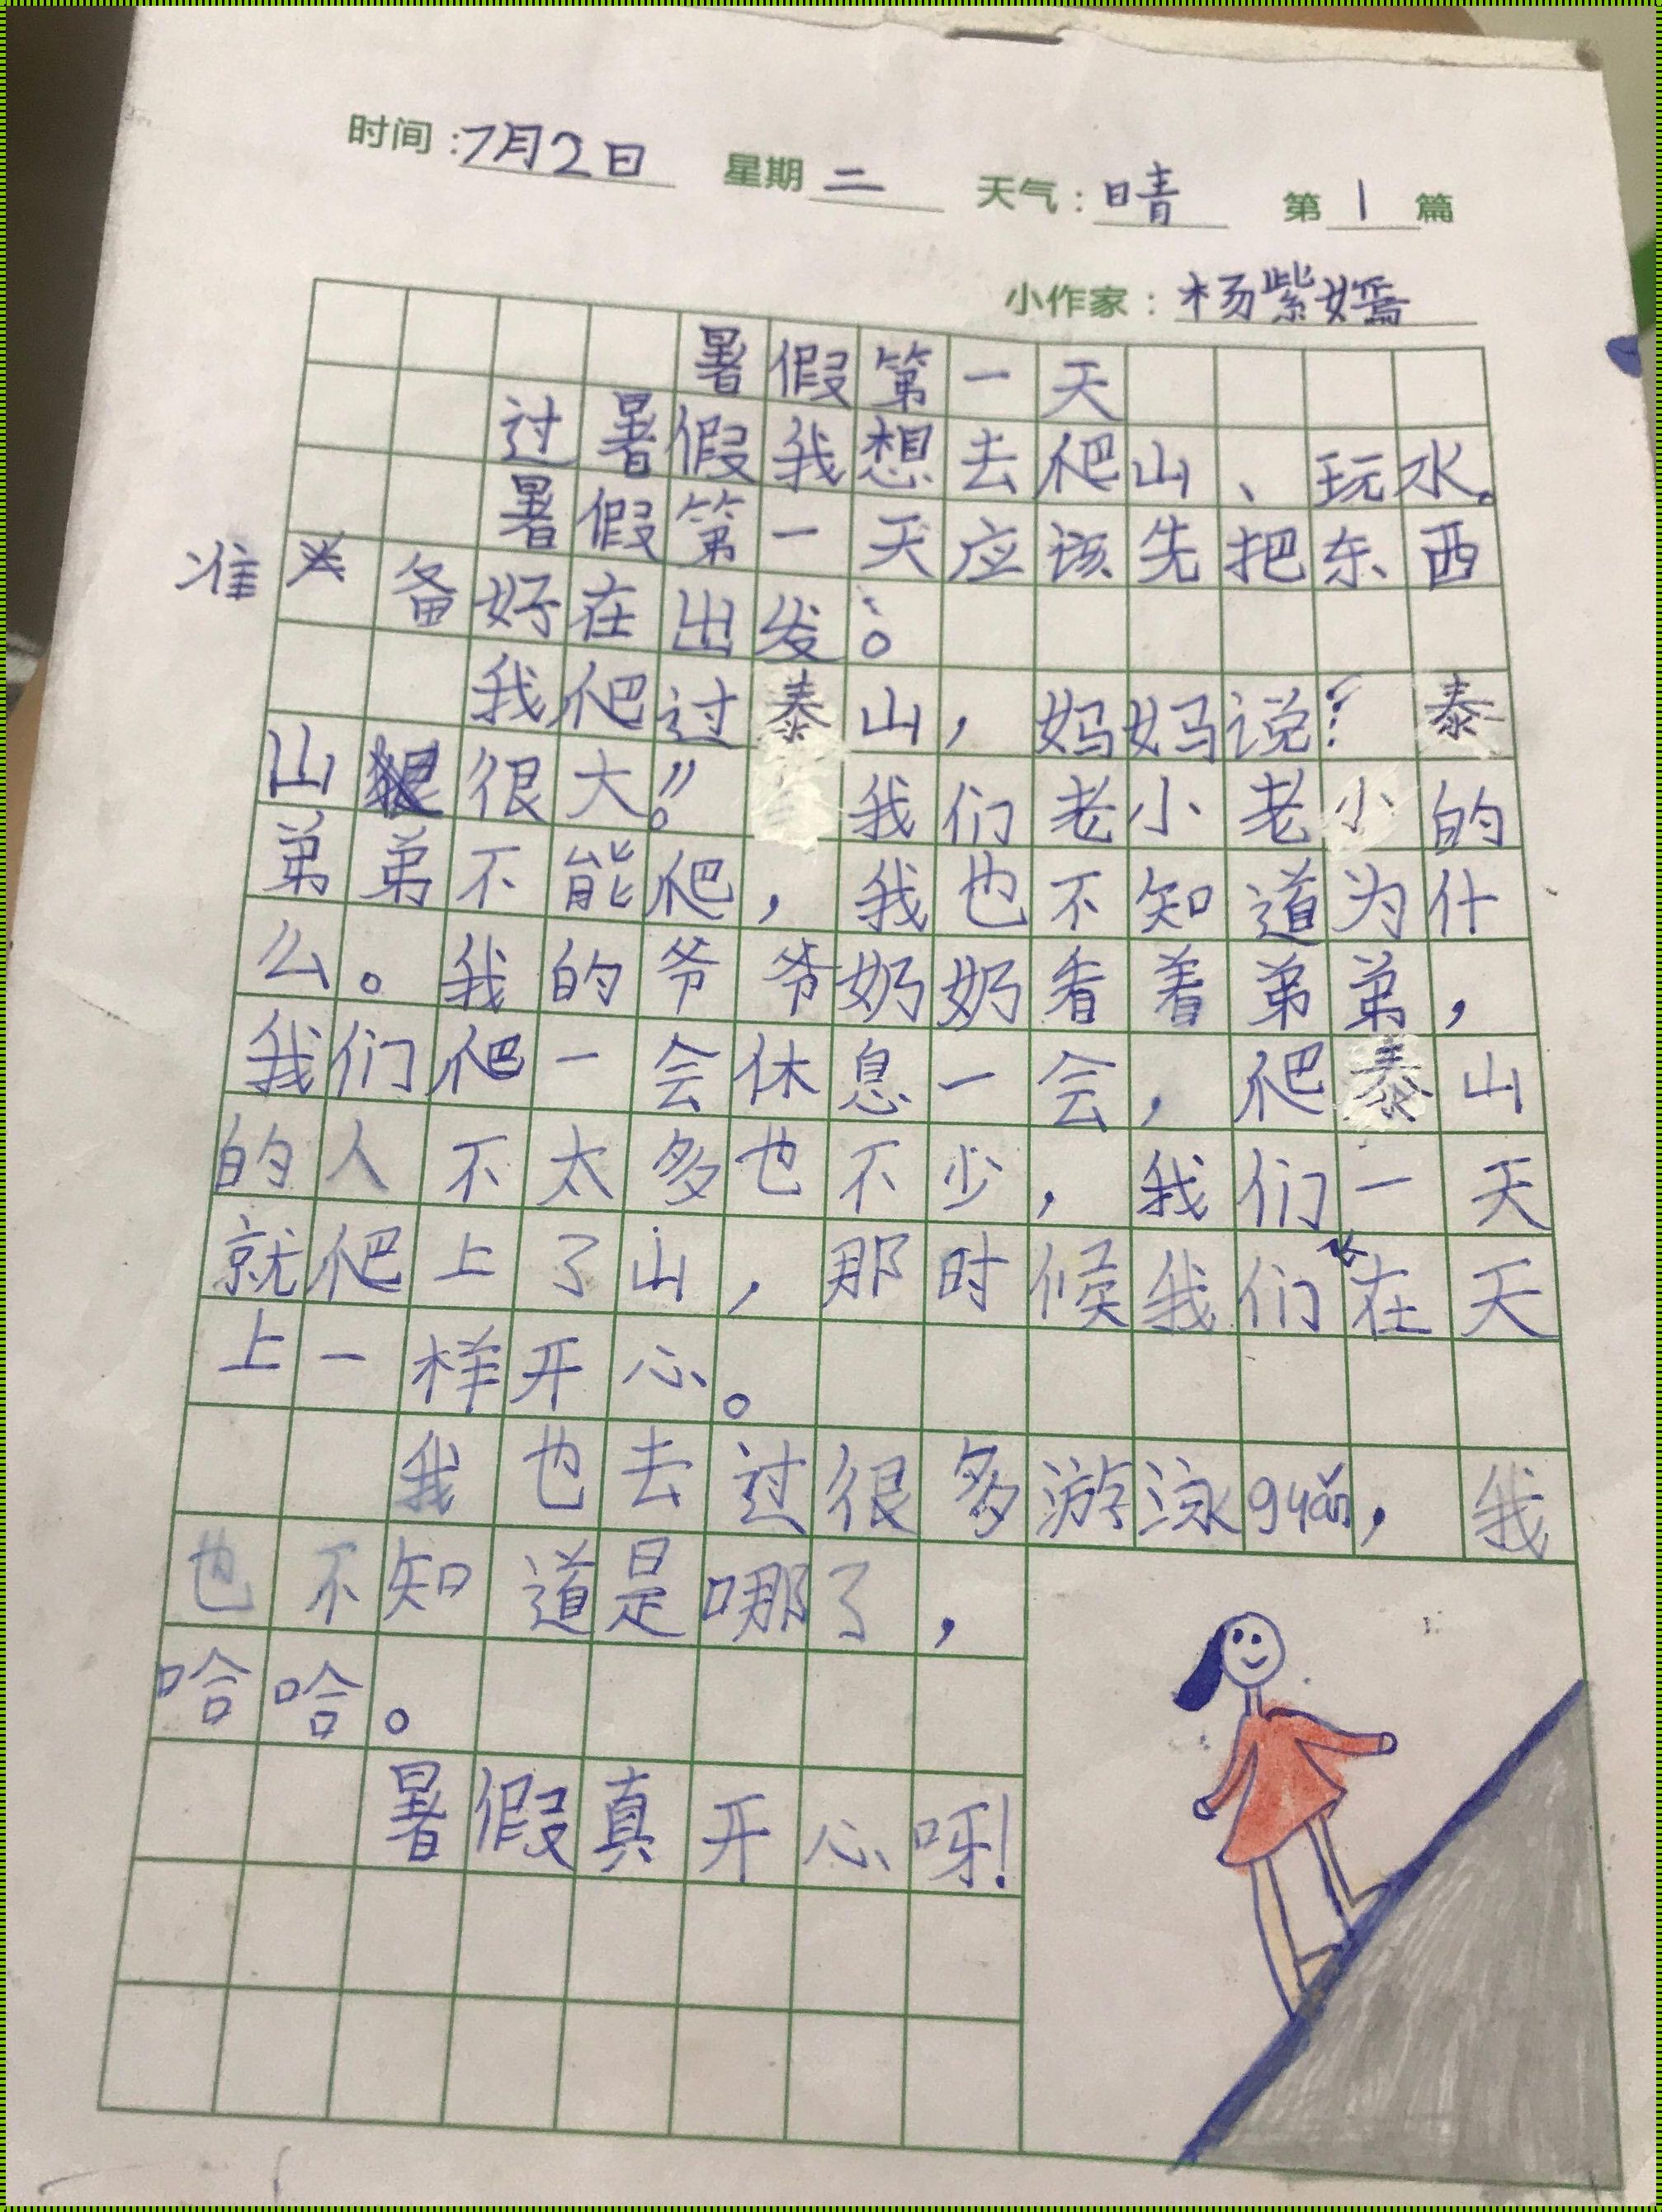 时间：7月2日 星期二 天气：晴 第1篇
小作家：杨紫嫣
暑假第一天
过暑假我想去爬山、玩水。
暑假第一天应该先把东西
准备好在出发。
我爬过泰山，妈妈说：“泰
山很大。”我们老小老小的
弟弟不能爬，我也不知道为什
么。我的爷爷奶奶看着弟弟，
我们爬一会休息一会，爬泰山
的人不太多也不少，我们一天
就爬上了山，那时候我们在天
上一样开心。
我也去过很多游泳guǎn，我
也不知道是哪了，
哈哈。
暑假真开心呀！